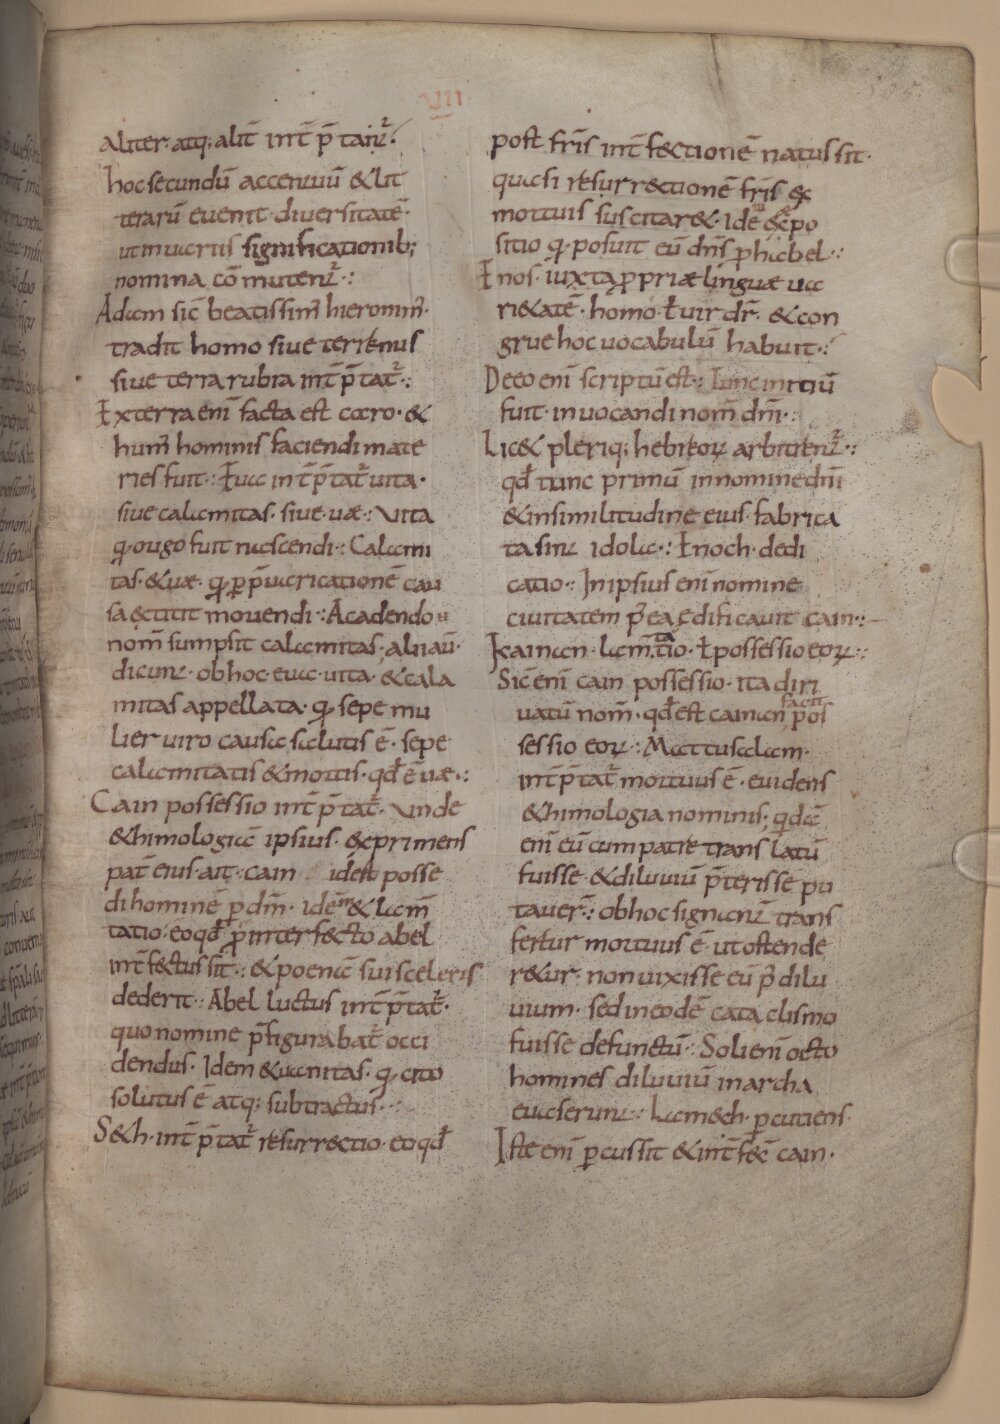 VII
aliter·atq;·alit̄ int̄p̄tant᷑·
hoc secundū accentuū &lit
terarū euenit diuersitatē·
ut in uariis significationib;
nomina cōmutent᷑·:
Adam sic̄ beatissim̄ hieronim̄·
tradit homo siue terrenus
siue terra rubra int̄p̄tat᷑·:
Ex terra eni᷑ facta est caro· &
hum̄ hominis faciendi mate
ries fuit·: Eua int̄p̄tat᷑ uita·
siue calamitas· siue· uæ·: Uita
q̨· origo fuit nascendi·: Calami
tas· &uæ· q̨· ꝑp̄uaricationē cau
sa extitit moriendi·: A cadendo
nom̄ sumpsit calamitas· alii au̅·
dicunt᷑· ob hoc· eua· uita· &cala
mitas appellata· q̨· sepe mu
lier uiro causa salutis ē· sepe
calamitatis &mortis· qđ ē uæ·:
Cain possessio int̄p̄tat᷑· unde
&himologiā ipsius· &primens
pat̄ eius· ait· cain idest posse
di hominē ꝑ dm̄· idē &lam̄
tatio· eo qđ ꝓ interfecto abel
int̄fectus sit·: &poenā sui sceleris
dederit·: Abel luctus int̄p̄tat᷑·
quo nomine p̄figurabat᷑ occi
dendus· Idem &uanitas· q̨· cito
solutus ē atq; subtractus·:
S&h· int̄p̄tat᷑ resurrectio· eo qđ
post fr̄is int̄fectionē natus sit·
quasi resurrectionē fr̄is ex
mortuis suscitar&· idē &po
sitio q̨· posuit eū dn̄s ꝓ hic bel·:
Enos· iuxta ꝓpriæ linguæ ua
ri&atē· homo· ł uir dr̄· &con
grue hoc uocabulū habuit·:
De eo eni᷑ scriptū est·: Tunc initiū
fuit· inuocandi nom̄ dn̄i·:
Lic& pleriq; hebreoꝝ arbitrent᷑·:
qđ tunc primū in nomine dn̄i
&in similitudine eius· fabrica
ta sint idola·: Enoch· dedi
catio·: In ipsius eni᷑ nomine
ciuitatem p̄ea ędificauit cain·:
Kainan· lam̄tatio· ł possessio eoꝝ·:
Sic̄ eni᷑ cain possessio· ita diri
uatū nom̄· qđ est cainan facit pos
sessio eoꝝ·: Mattusalam·
int̄p̄tat᷑ mortuus ē· euidens
&himologia nominis; qdā
eni᷑ eū cum patre translatū
fuisse· &diluuiū p̄terisse pu
tauer̄·: ob hoc signant᷑ trans
fertur mortuus ē· ut ostende
r&ur· non uixisse eū p᷑ dilu
uium· sed in eodē cataclismo
fuisse defunctū·: Soli eni᷑ octo
homines diluuiū in archa
euaserunt·: Lam&h· ꝑcutiens·
Iste eni᷑ ꝑcussit &int̄fec̄ cain·